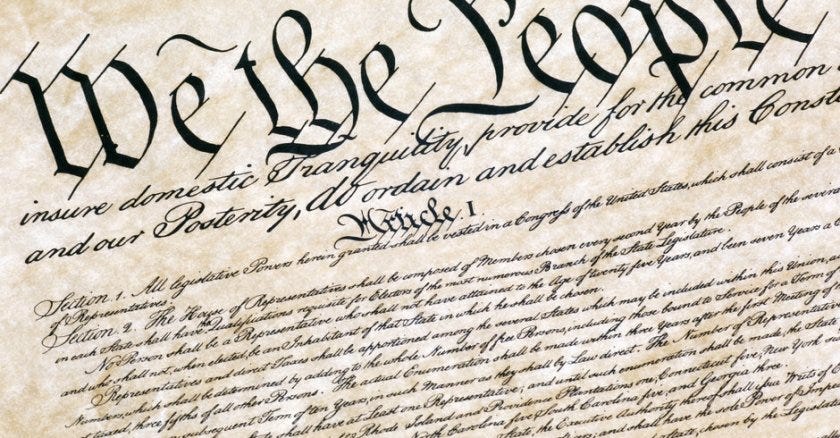 We the People
insure domestic Tranquility, provide for the common
and our Posterity, do ordain and establish this Const
Article. I.
Section. 1. All legislative Powers herein granted shall be vested in a Congress of the United States, which shall consist of a
of Representatives.
Section. 2. The House of Representatives shall be composed of Members chosen every second Year by the People of the several
in each State shall have the Qualifications requisite for Electors of the most numerous Branch of the State Legislature.
No Person shall be a Representative who shall not have attained to the Age of twenty five Years, and been seven Years a
and who shall not, when elected, be an Inhabitant of that State in which he shall be chosen.
Representatives and direct Taxes shall be apportioned among the several States which may be included within this Union,
Numbers, which shall be determined by adding to the whole Number of free Persons, including those bound to Service for a Term of
not taxed, three fifths of all other Persons. The actual Enumeration shall be made within three Years after the first Meeting of
subsequent Term of ten Years, in such Manner as they shall by Law direct. The Number of Representatives
shall have at Least one Representative; and until such enumeration shall be made, the State
Rhode Island and Providence Plantations one, Connecticut five, New York
North Carolina five, South Carolina five, and Georgia three.
State, the Executive Authority thereof shall issue Writs of
and shall have the sole Power of Imp
State, chosen by the Legislature